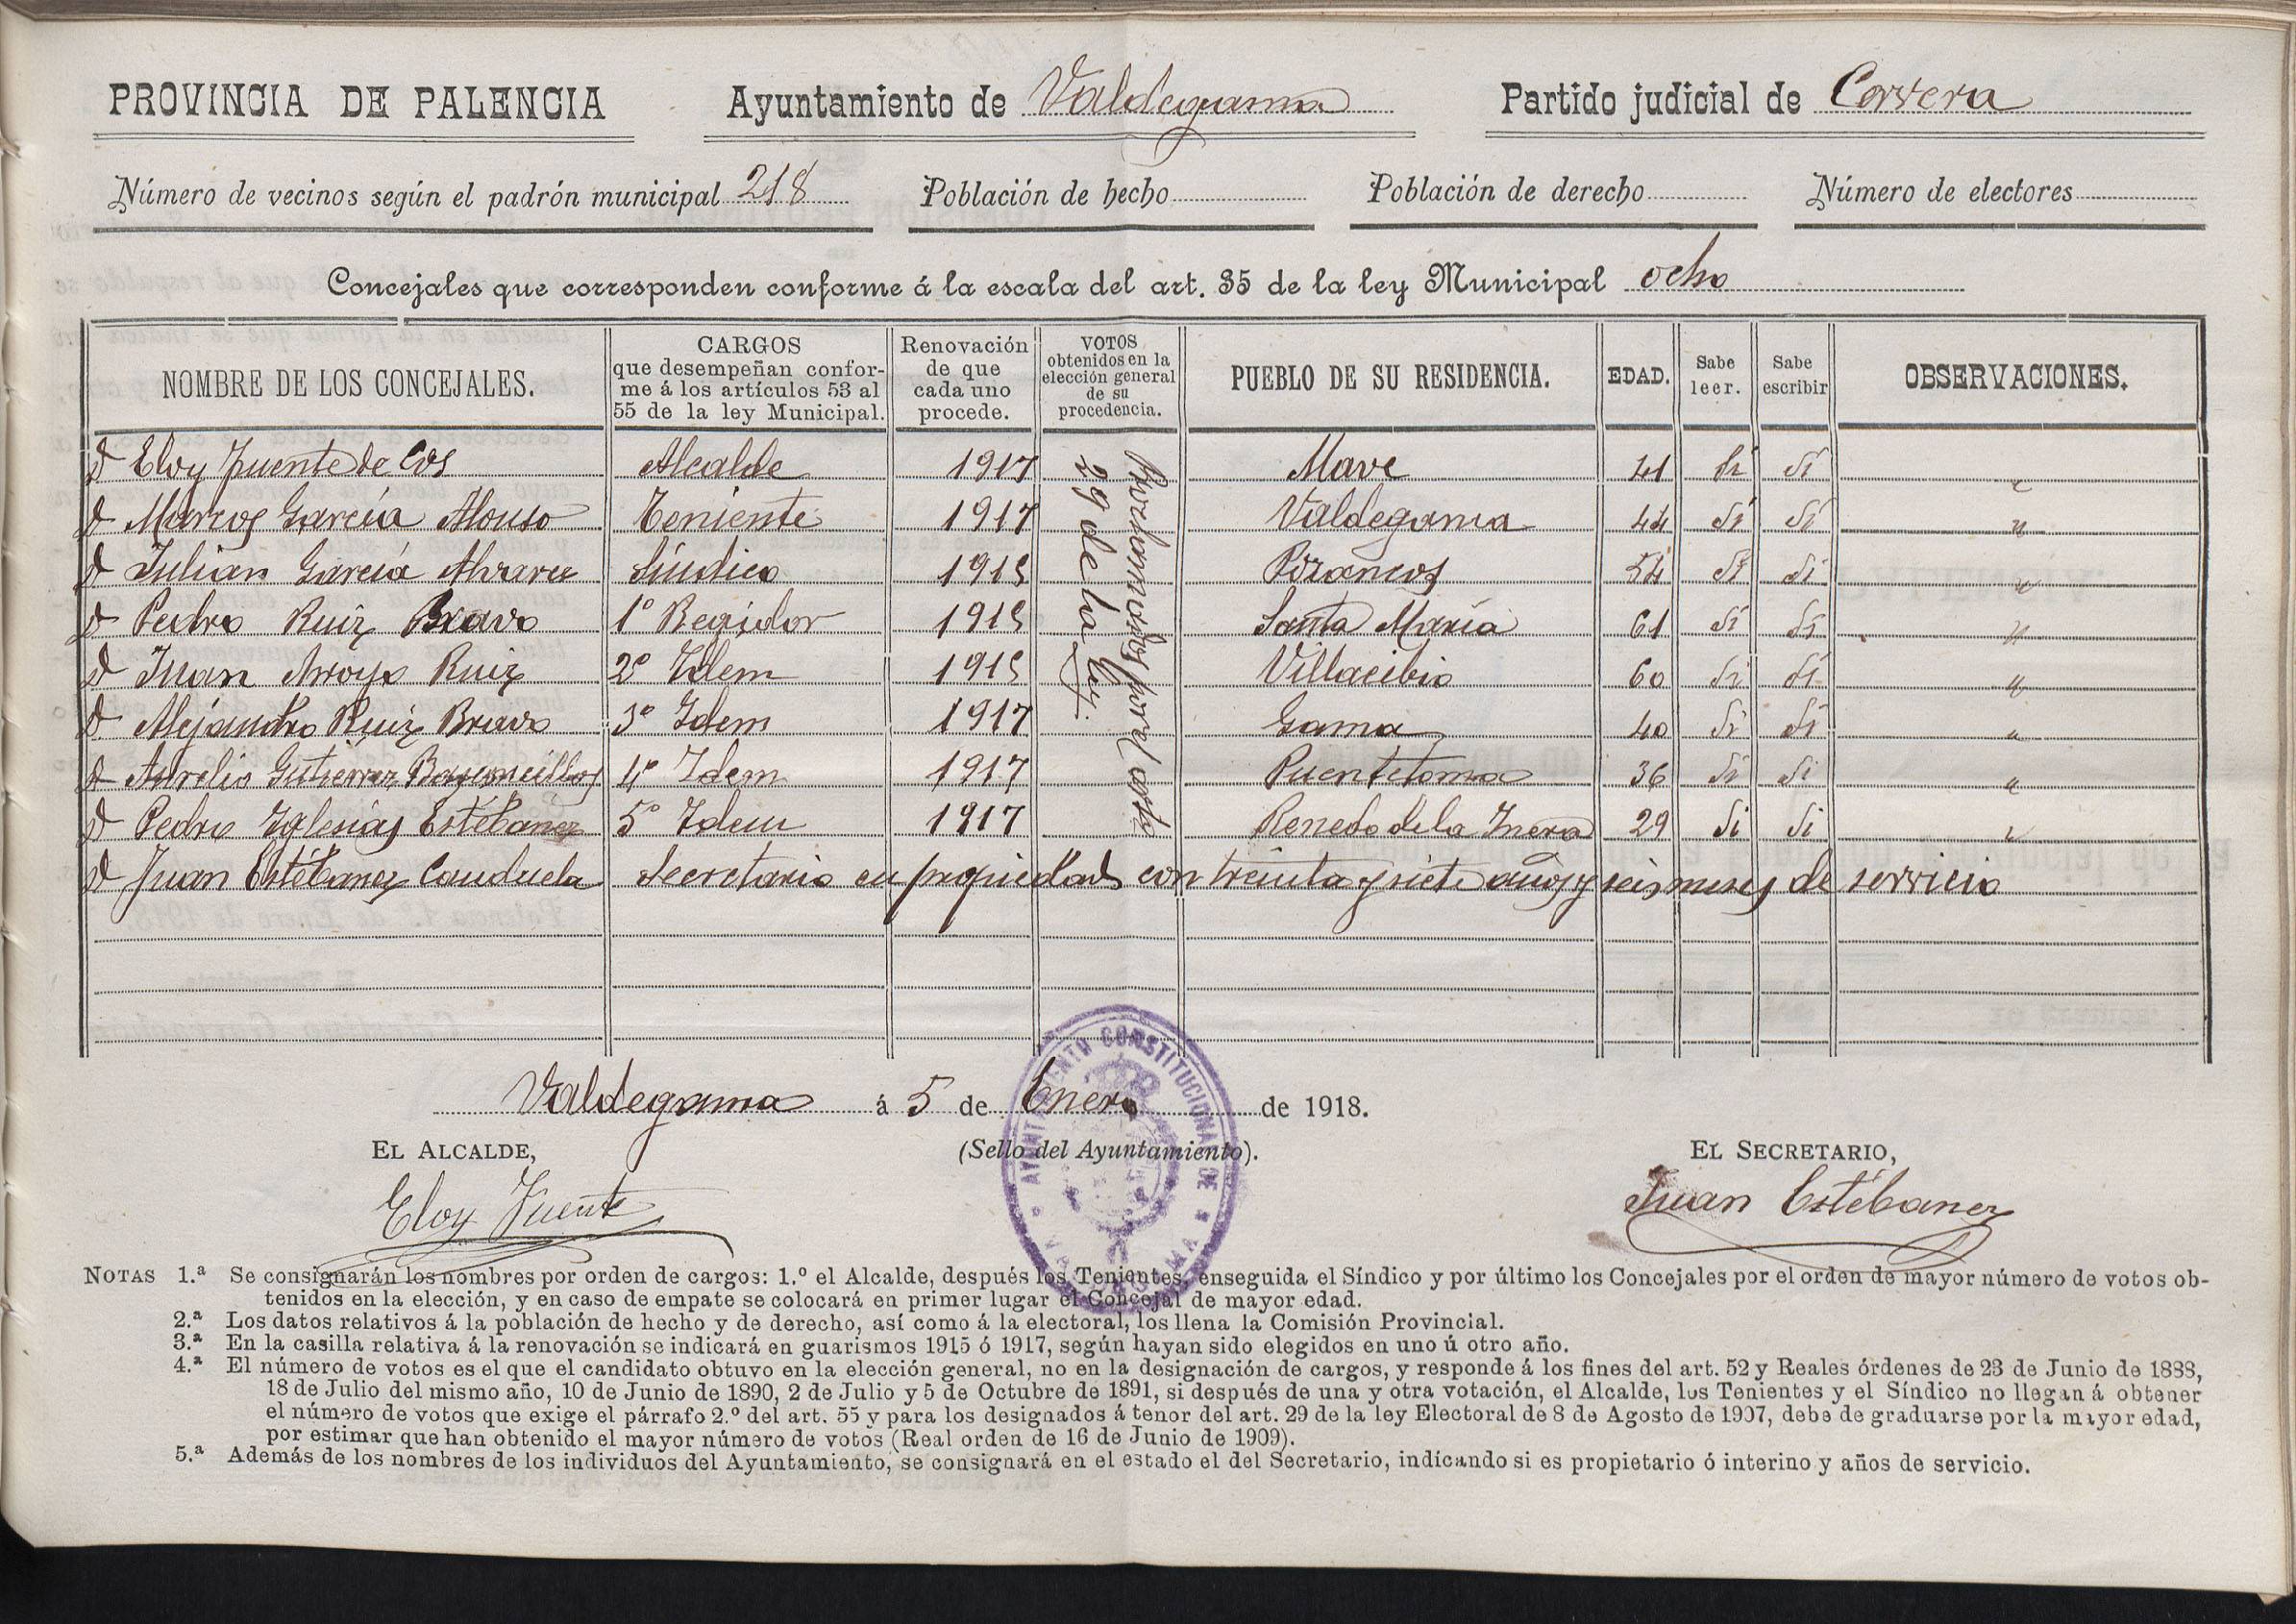 PROVINCIA DE PALENCIA Ayuntamiento de Valdegama Partido judicial de Cervera
Número de vecinos según el padrón municipal 218 Población de hecho Población de derecho Número de electores
Concejales que corresponden conforme á la escala del art. 35 de la ley Municipal ocho
NOMBRE DE LOS CONCEJALES. CARGOS que desempeñan conforme á los artículos 53 al 55 de la ley Municipal. Renovación de que cada uno procede. VOTOS obtenidos en la elección general de su procedencia. PUEBLO DE SU RESIDENCIA. EDAD. Sabe leer. Sabe escribir OBSERVACIONES.
D Eloy Fuente de Cos Alcalde 1917 Mave 41 Si Si "
D Marcos García Alonso Teniente 1917 Valdegama 44 Si Si "
D Julián García Alvarez Síndico 1915 Pozancos 54 Si Si "
D Pedro Ruiz Bravo 1º Regidor 1915 Santa María 61 Si Si "
D Juan Arroyo Ruiz 2º Idem 1915 Villacibio 60 Si Si "
D Alejandro Ruiz Bravo 3º Idem 1917 Gama 40 Si Si "
D Aurelio Gutierrez 4º Idem 1917 Puentetoma 36 Si Si "
D Pedro Iglesias Estébanez 5º Idem 1917 Renedo de la Inera 29 Si Si "
Proclamados por el arto
29 de la ley.
D Juan Estébanez Canduela Secretario en propiedad con treinta y siete años y seis meses de servicio
Valdegama á 5 de Enero de 1918.
EL ALCALDE, (Sello del Ayuntamiento). EL SECRETARIO,
Eloy Fuente Juan Estébanez
AYUNTAMIENTO CONSTITUCIONAL DE VALDEGAMA
NOTAS 1.ª Se consignarán los nombres por orden de cargos: 1.º el Alcalde, después los Tenientes, enseguida el Síndico y por último los Concejales por el orden de mayor número de votos ob-
tenidos en la elección, y en caso de empate se colocará en primer lugar el Concejal de mayor edad.
2.ª Los datos relativos á la población de hecho y de derecho, así como á la electoral, los llena la Comisión Provincial.
3.ª En la casilla relativa á la renovación se indicará en guarismos 1915 ó 1917, según hayan sido elegidos en uno ú otro año.
4.ª El número de votos es el que el candidato obtuvo en la elección general, no en la designación de cargos, y responde á los fines del art. 52 y Reales órdenes de 23 de Junio de 1888,
18 de Julio del mismo año, 10 de Junio de 1890, 2 de Julio y 5 de Octubre de 1891, si después de una y otra votación, el Alcalde, los Tenientes y el Síndico no llegan á obtener
el número de votos que exige el párrafo 2.º del art. 55 y para los designados á tenor del art. 29 de la ley Electoral de 8 de Agosto de 1907, debe de graduarse por la mayor edad,
por estimar que han obtenido el mayor número de votos (Real orden de 16 de Junio de 1909).
5.ª Además de los nombres de los individuos del Ayuntamiento, se consignará en el estado el del Secretario, indicando si es propietario ó interino y años de servicio.